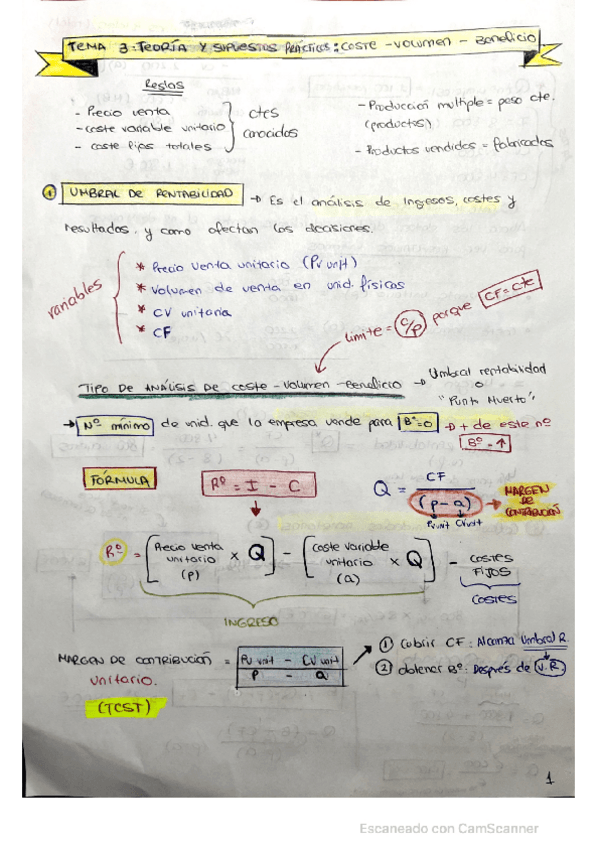 TEMA 3: TEORÍA Y SUPUESTOS PRÁCTICOS: COSTE - VOLUMEN - BENEFICIO
Reglas
- Precio venta
- coste variable unitario
- coste fijos totales
ctes
conocidos
- Producción multiple = peso cte.
(productos)
- Productos vendidos = fabricados
1 UMBRAL DE RENTABILIDAD → Es el análisis de Ingresos, costes y
resultados, y como afectan las decisiones.
variables
* Precio venta unitario (PV unit)
* Volumen de venta en unid. físicas
* CV unitaria
* CF
límite = c/p porque CF = cte
TIPO DE ANÁLISIS DE COSTE - VOLUMEN - BENEFICIO → Umbral rentabilidad
o
"Punto Muerto"
→ Nº mínimo de unid. que la empresa vende para Bº=0 → + de este nº
Bº = ↑
FÓRMULA
Rº = I - C
Q = CF / (p - a) → MARGEN DE CONTRIBUCIÓN
PVunit CVunit
Rº = [Precio venta unitario (p) × Q] - [coste variable unitario (a) × Q] - COSTES FIJOS
COSTES
INGRESO
MARGEN DE CONTRIBUCIÓN = PV unit - CV unit
unitario. P - a
(TEST)
① cubrir CF: Alcanza Umbral R.
② obtener Bº: Después de U.R
1
Escaneado con CamScanner